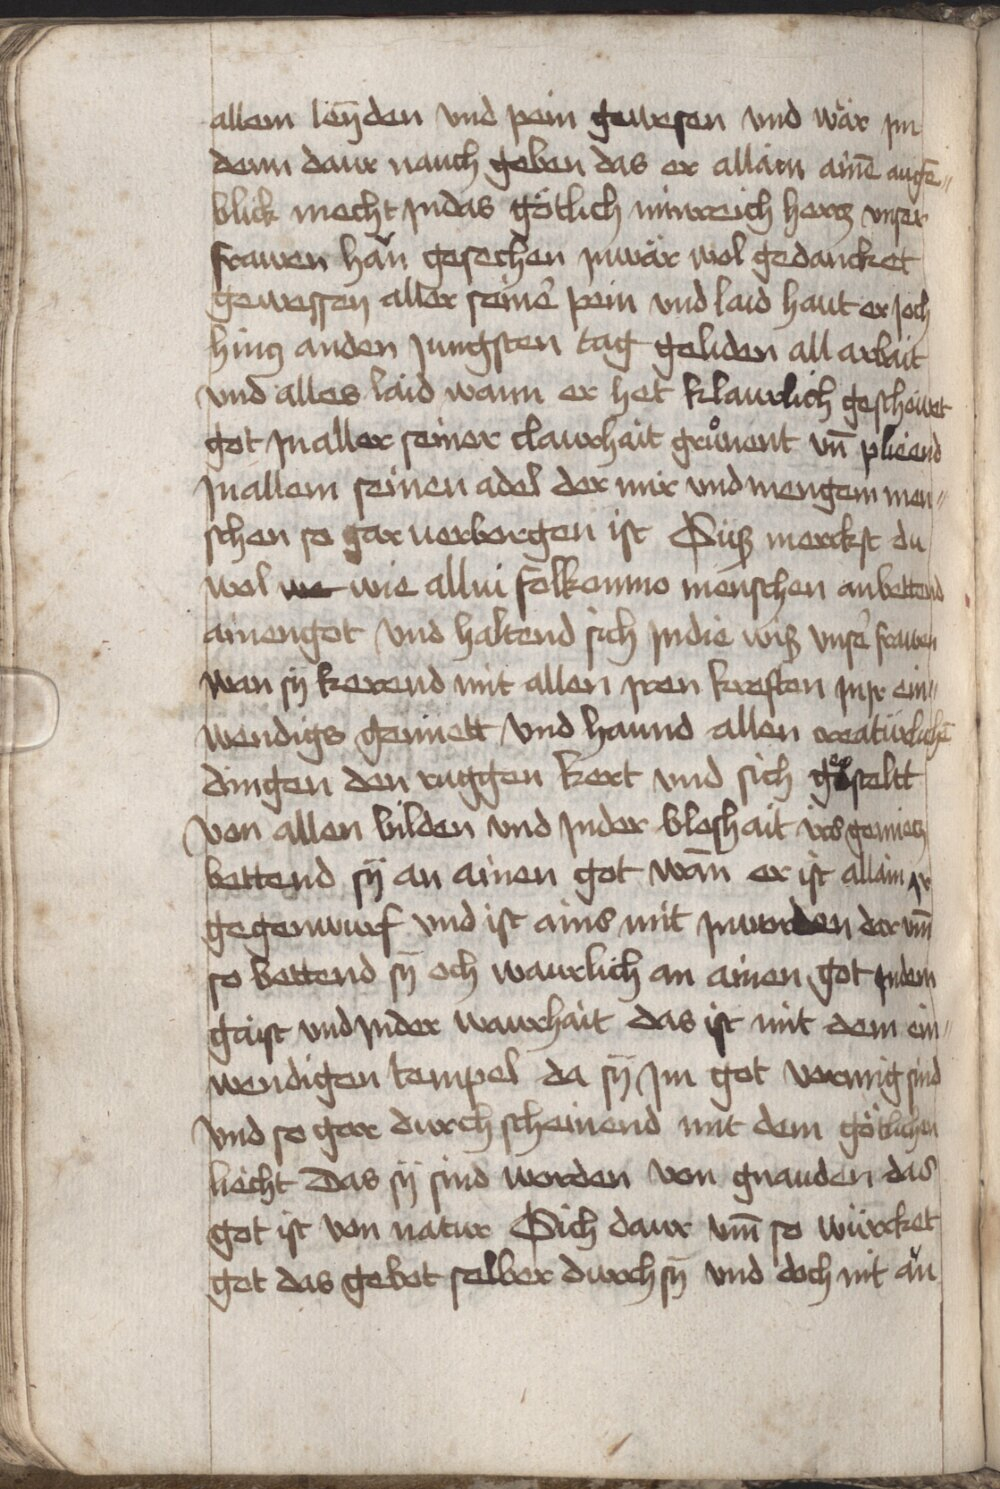 allem leÿden vnd pein gewesen vnd wär jm
denn daur nauch geben das er allain ainē augē〃
blick mecht jn das götlich minreich hercz vnser
frawen hǎn gesechen jn wär wol gedancket
gewessen aller seinē pein vnd laid haut er joch
hincz an den jungsten tag geliden all arbait
vnd alles laid wann er het klaurlich geschöwet
got jn aller seiner claurhait grůnent vn̄ plieend
jn allem seinen adel der mir vnd mengem men〃
schen so gar uerborgen ist Süß merckst du
wol we wie allui folkommo menschen anbettend
ainen got vnd haltend sich jn die wiß vnser frawen
wan sÿ kerend mit allen jren kreften jn jr ein〃
wendigs gemiett vnd haund allen creatürlichē
dingen den ruggen kert vnd sich gestelt
von allen bilden vnd jn der bloshait irs gemiecz
bettend sÿ an ainen got wān er ist allain jr
gegenwurf vnd ist ains mit jn worden dar vm̄
so bettend sÿ och waurlich an ainen got jn dem
gaist vnd jn der waurhait das ist mit dem ein〃
wendigen tempel da sÿ jm got veranig sind
vnd so gar durch scheinend mit dem götlichen
liecht Das sÿ sind worden von gnauden das
got ist von natur Sich daur vm̄ so würcket
got das gebot selber durch sÿ vnd doch nit ǎn